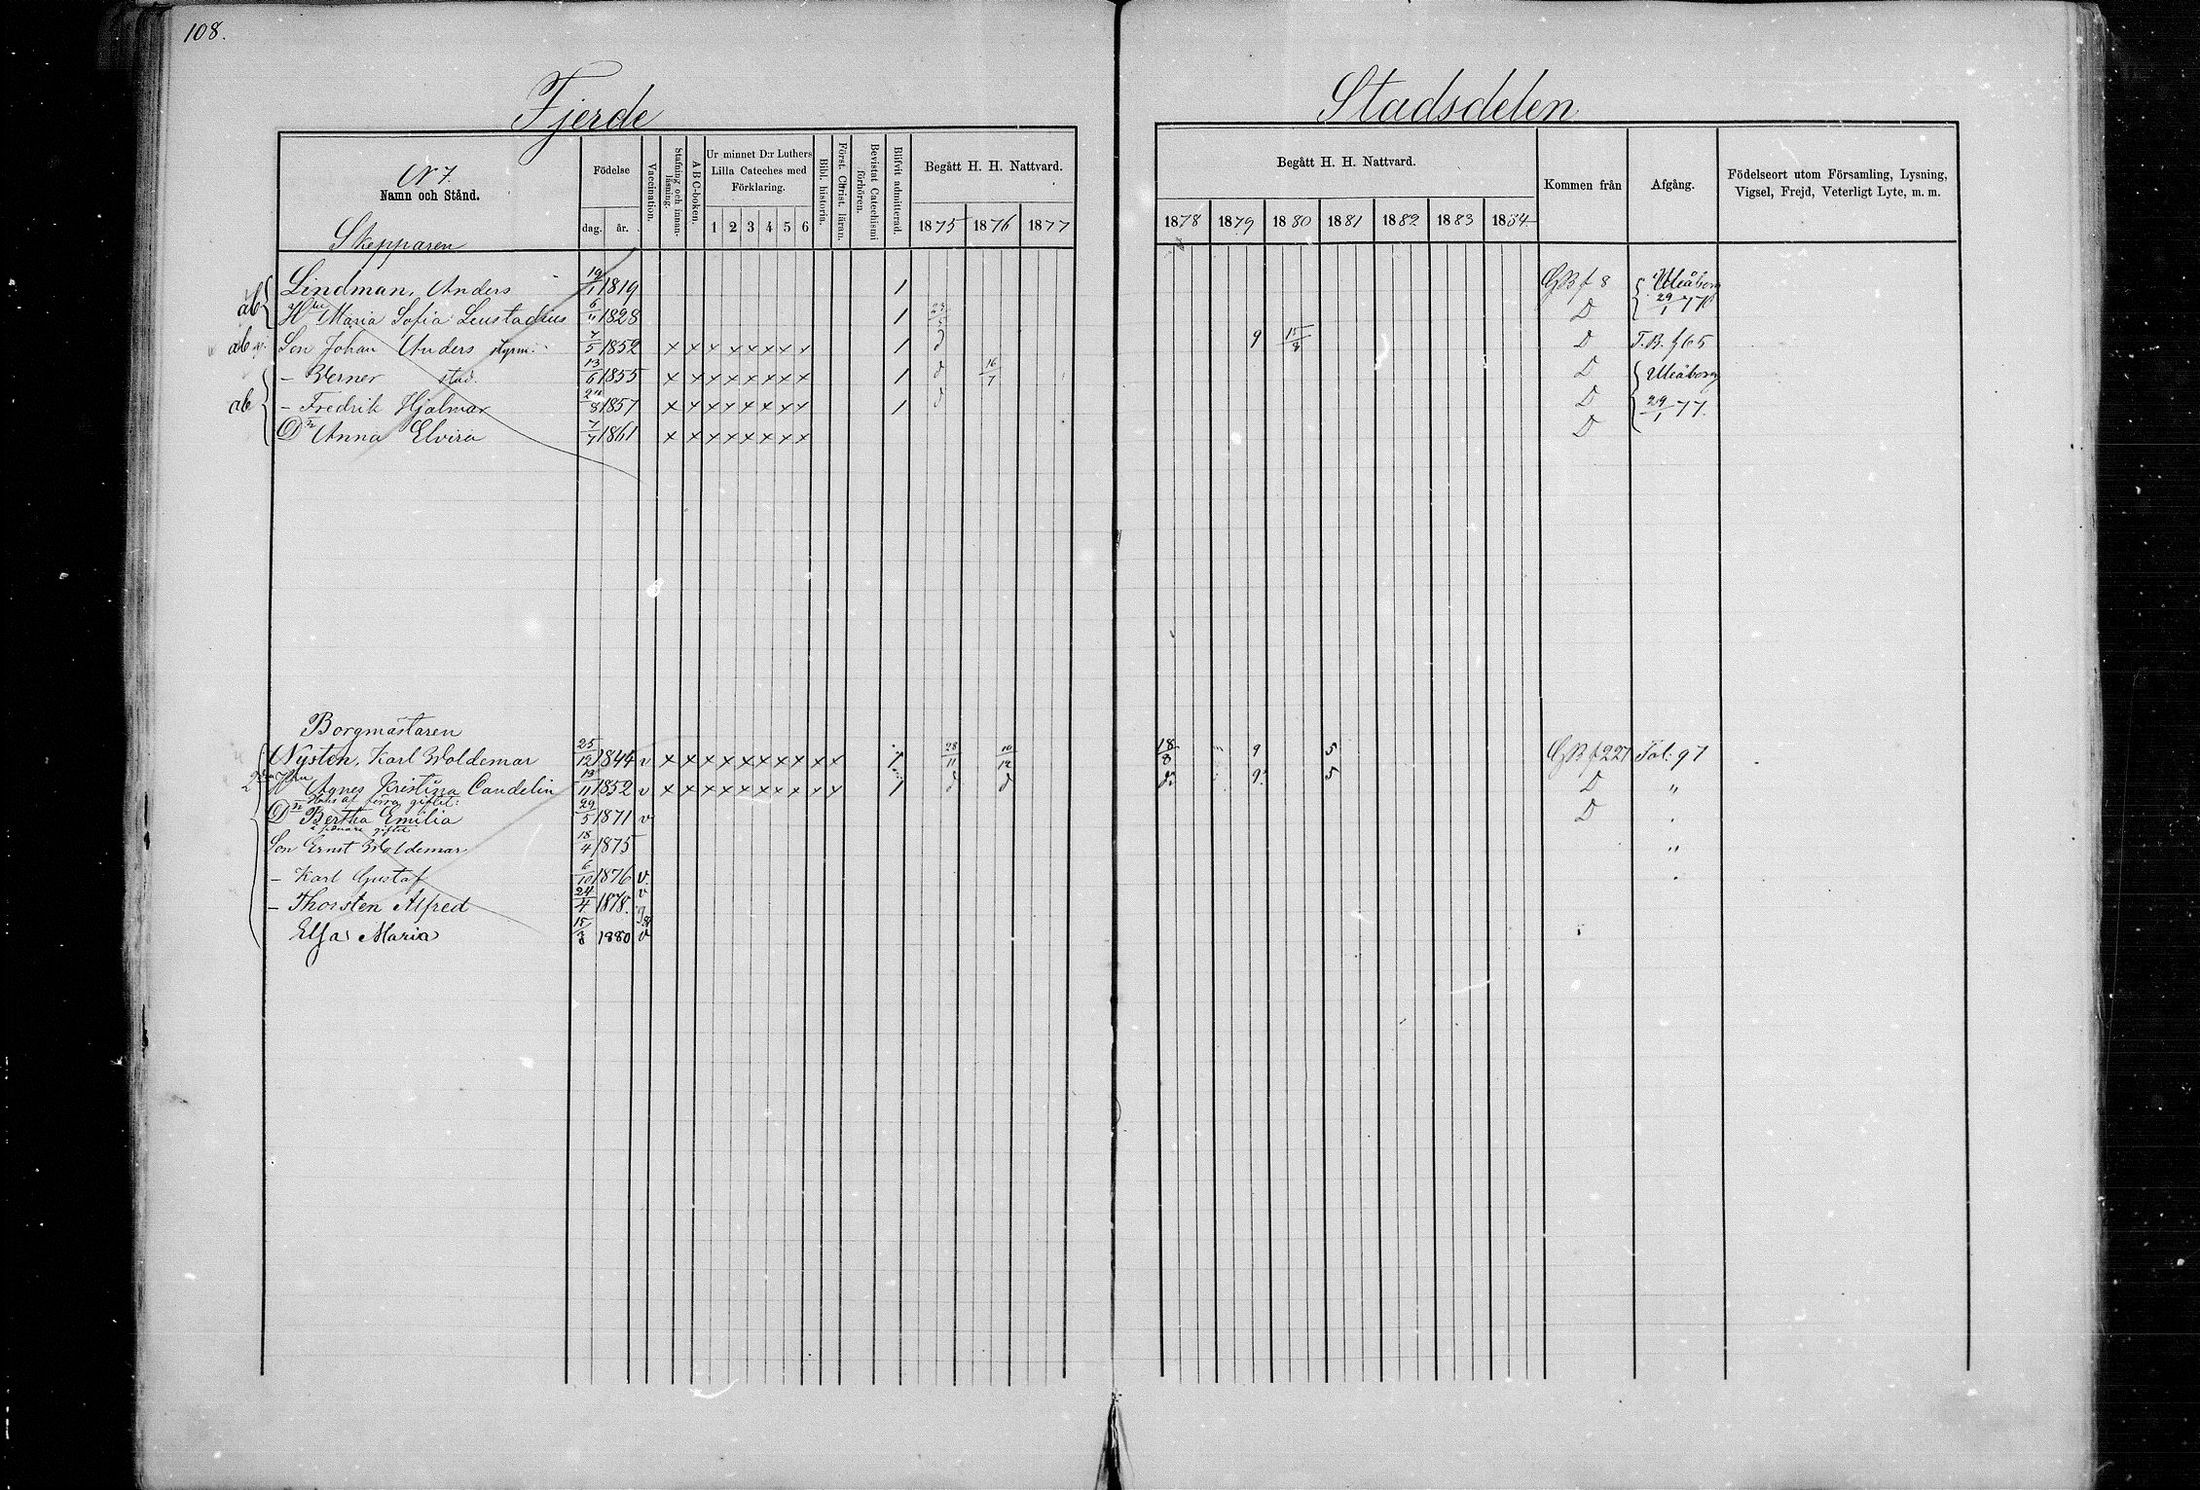 108.
Fjerde Stadsdelen
N 7.
Namn och Stånd.
Födelse
dag. år.
Vaccination.
Stafning och innanläsning.
A B C-boken.
Ur minnet D:r Luthers Lilla Cateches med Förklaring.
1 2 3 4 5 6
Bibl. historia.
Först. Christ. läran.
Bevistat Catechismi förhören.
Blifvit admitterad.
Begått H. H. Nattvard.
1875 1876 1877
Begått H. H. Nattvard.
1878 1879 1880 1881 1882 1883 1884
Kommen från
Afgång.
Födelseort utom Församling, Lysning, Vigsel, Frejd, Veterligt Lyte, m. m.
Skepparen
Lindman, Anders 1819 1 GB f 8 Uleåborg
ab Hu Maria Sofia 6/11 1828 1 D 29/1 77
ab Son Johan Anders styrm. 7/5 1852 x x x x x x x x 1 d 9 15/8 D T.B. f 65
- Werner stud. 13/6 1855 x x x x x x x x 1 d 16/7 D Uleåborg
ab - Fredrik Hjalmar 1857 x x x x x x x x 1 d D 29/1 77.
Dr Anna Elvira 7/7 1861 x x x x x x x x D
Borgmästaren
Nysten, Karl Woldemar 25/12 1844 v x x x x x x x x x x 1 28/11 10/12 18/8 9 5 GB f 227 Fol: 97
Hu Agnes Kristina Candelin 13/11 1852 v x x x x x x x x x x 1 d d d: 9: 5 D "
Hans af förra giftet:
Dr Bertha Emilia 29/5 1871 v D
i senare giftet
Son Ernst Woldemar 18/4 1875 "
- Karl Gustaf 6/10 1876 v.
- Thorsten Alfred 24/4 1878. v
Elsa Maria 1880 v